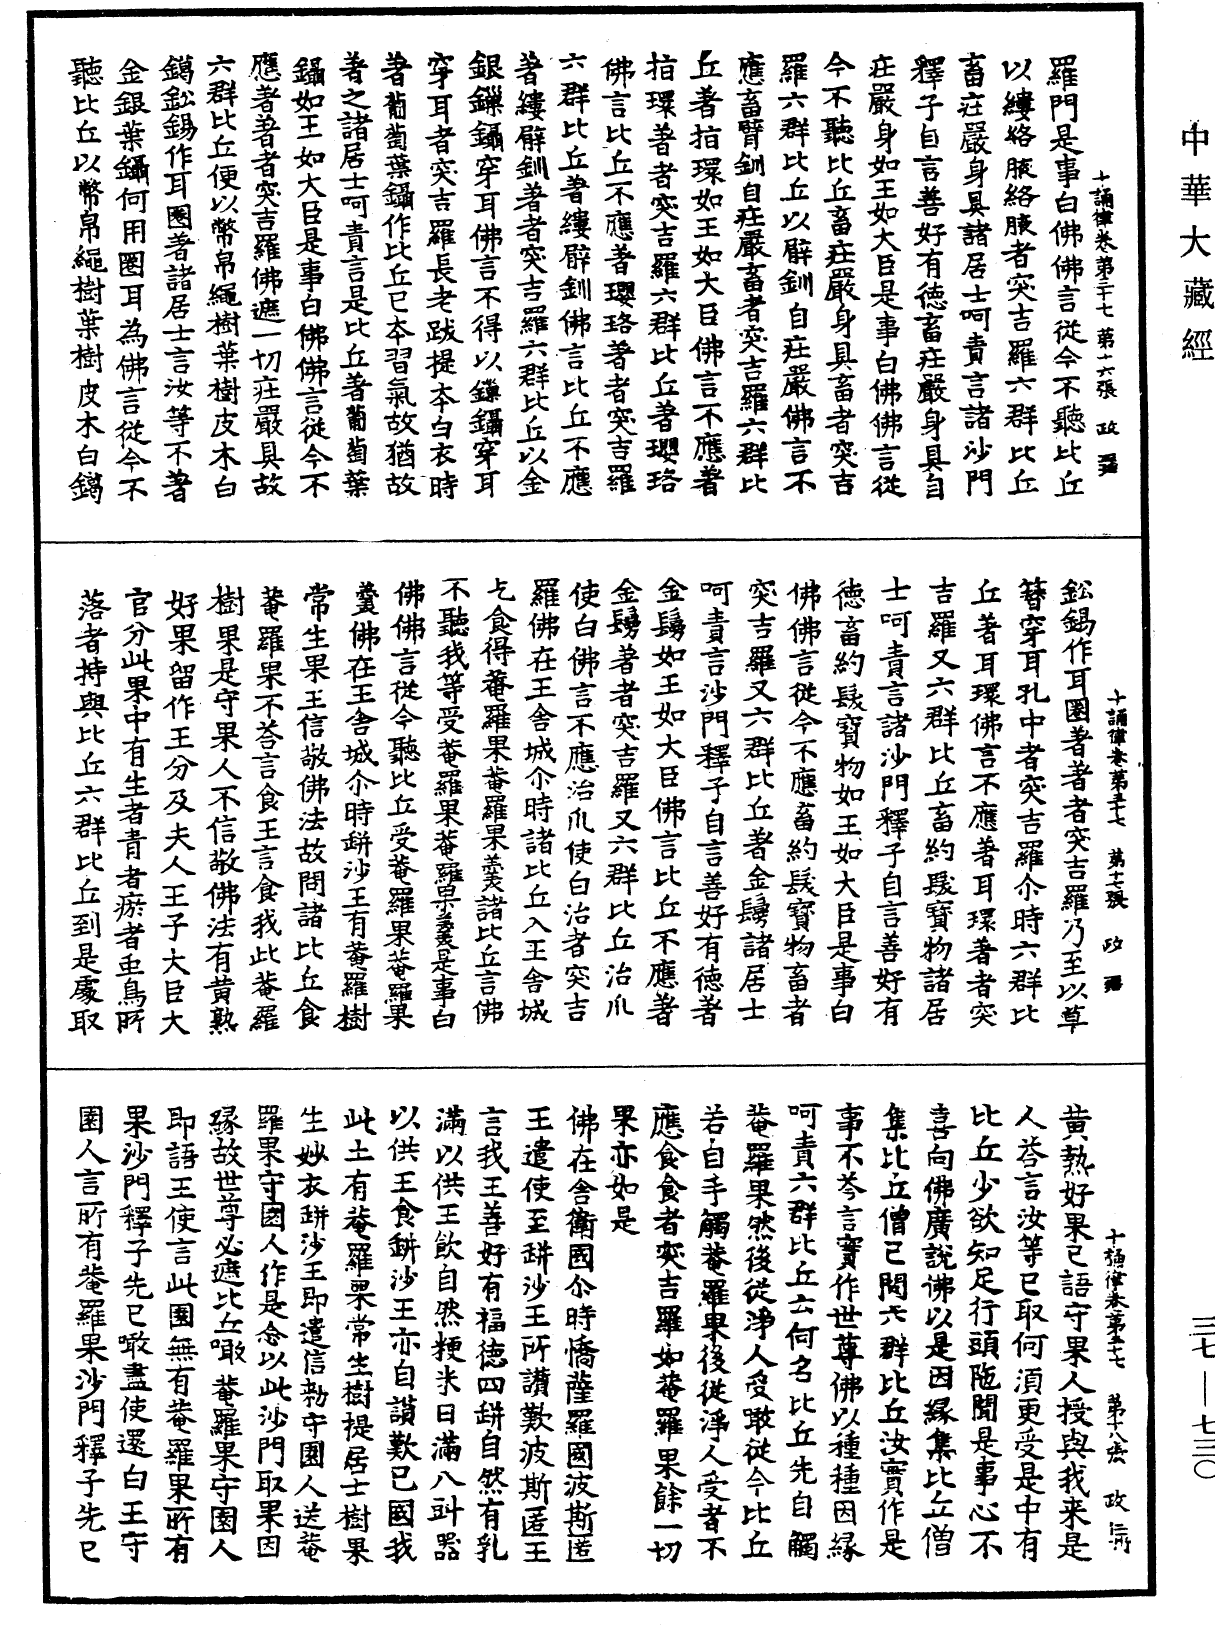 中華大藏經
十誦律卷第三十七 第十六張 政
羅門是事白佛佛言從今不聽比丘
以縷絡腋絡腋者突吉羅六群比丘
畜莊嚴身具諸居士呵責言諸沙門
釋子自言善好有德畜莊嚴身具自
莊嚴身如王如大臣是事白佛佛言從
今不聽比丘畜莊嚴身具畜者突吉
羅六群比丘以臂釧自莊嚴佛言不
應畜臂釧自莊嚴畜者突吉羅六群比
丘著指環如王如大臣佛言不應著
指環著者突吉羅六群比丘著瓔珞
佛言比丘不應著瓔珞著者突吉羅
六群比丘著縷臂釧佛言比丘不應
著縷臂釧著者突吉羅六群比丘以金
銀鏁鑷穿耳佛言不得以鏁鑷穿耳
穿耳者突吉羅長老跋提本白衣時
著蒱萄葉鑷作比丘已本習氣故猶故
著之諸居士呵責言是比丘著蒱萄葉
鑷如王如大臣是事白佛佛言從今不
應著著者突吉羅佛遮一切莊嚴具故
六群比丘便以幣帛繩樹葉樹皮木白
鑞鈆錫作耳圈著諸居士言汝等不著
金銀葉鑷何用圈耳為佛言從今不
聽比丘以幣帛繩樹葉樹皮木白鑞
十誦律卷第三十七 第十七張 政
鈆錫作耳圈著著者突吉羅乃至以草
簪穿耳孔中者突吉羅尒時六群比
丘著耳環佛言不應著耳環著者突
吉羅又六群比丘畜約髮寶物諸居
士呵責言諸沙門釋子自言善好有
德畜約髮寶物如王如大臣是事白
佛佛言從今不應畜約髮寶物畜者
突吉羅又六群比丘著金鬘諸居士
呵責言沙門釋子自言善好有德著
金鬘如王如大臣佛言比丘不應著
金鬘著者突吉羅又六群比丘治爪
使白佛言不應治爪使白治者突吉
羅佛在王舍城尒時諸比丘入王舍城
乞食得菴羅果菴羅果羹諸比丘言佛
不聽我等受菴羅果菴羅果羹是事白
佛佛言從今聽比丘受菴羅果菴羅果
羹佛在王舍城尒時缾沙王有菴羅樹
常生果王信敬佛法故問諸比丘食
菴羅果不荅言食王言食我此菴羅
樹果是守果人不信敬佛法有黃熟
好果留作王分及夫人王子大臣大
官分此果中有生者青者瘀者虫鳥所
落者持與比丘六群比丘到是處取
十誦律卷第三十七 第十八張 政
黃熱好果已語守果人授與我来是
人荅言汝等已取何湏更受是中有
比丘少欲知足行頭陁聞是事心不
喜向佛廣說佛以是因緣集比丘僧
集比丘僧已問六群比丘汝實作是
事不荅言實作世尊佛以種種因緣
呵責六群比丘云何名比丘先自觸
菴羅果然後從淨人受噉從今比丘
若自手觸菴羅果後從淨人受者不
應食食者突吉羅如菴羅果餘一切
果亦如是
佛在舍衛國尒時憍薩羅國波斯匿
王遣使至缾沙王所讃歎波斯匿王
言我王善好有福德四缾自然有乳
滿以供王飲自然粳米日滿八㪷器
以供王食缾沙王亦自讃歎已國我
此土有菴羅果常生樹提居士樹果
生妙衣缾沙王即遣信勑守園人送菴
羅果守園人作是念以此沙門取果因
緣故世尊必遮比丘噉菴羅果守園人
即語王使言此園無有菴羅果所有
果沙門釋子先已噉盡使還白王守
園人言所有菴羅果沙門釋子先已
三七—七三〇